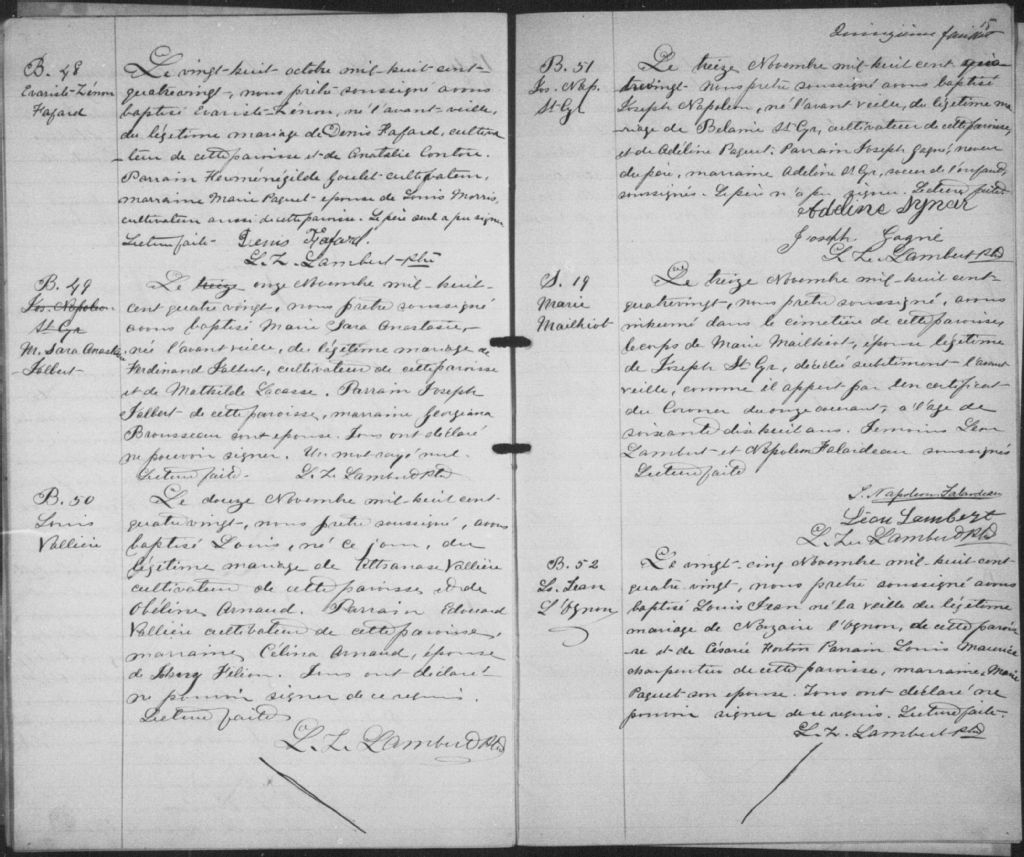 B. 48
Evariste-Zénon
Fafard
Le vingt-huit octobre mil-huit-cent-
quatrevingt-, nous prêtre soussigné avons
baptisé Evariste-Zénon, né l'avant-veille,
du légitime mariage de Denis Fafard, cultiva
-teur de cette paroisse et de Anatalie Contoir.
Parrain Herménégilde Goulet-cultivateur,
marraine Marie Paquet-épouse de Louis Morris,
cultivateur aussi de cette paroisse. Le père seul a pu signer
Lecture faite- Denis Fafard.
L. Z. Lambert-ptre
B. 49
Jos. Napoleon
St Gr
M. Sara Anastasie
Jalbert-
Le treize onze Novembre mil-huit-
cent quatre vingt-, nous prêtre soussigné
avons baptisé Marie Sara Anastasie,-
née l'avant veille, du légitime mariage de
Ferdinand Jalbert, cultivateur de cette paroisse
et de Mathilde Lacasse. Parrain Joseph
Jalbert de cette paroisse, marraine Georgiana
Brousseau son épouse. Tous ont déclaré
ne pouvoir signer. Un mot rayé nul.
Lecture faite- L. Z. Lambert ptre
B. 50
Louis
Vallière
Le douze Novembre mil-huit cent-
quatre vingt-, nous prêtre soussigné, avons
baptisé Louis, né ce jour, du
légitime mariage de Vallière
cultivateur de cette paroisse et de
Obéline Arnaud. Parrain Edouard
Vallière cultivateur de cette paroisse,
marraine, Célina Arnaud, épouse
de Filion. Tous ont déclaré
ne pouvoir signer de ce requis.
Lecture faite
L. Z. Lambert ptre
Quinzième feuillet
15
B. 51
Jos. Nap.
St Cyr
Le treize Novembre mil huit cent qua
trevingt- nous prêtre soussigné avons baptisé
Joseph Napoleon, né l'avant veille, du légitime ma
riage de Belanie St Cyr, cultivateur de cette paroisse,
et de Adéline Paquet; Parrain Joseph Gagné, neveu
du père, marraine Adéline St Cyr, soeur de l'enfant,
soussignés. Le père n'a pu signer. Lecture faite
Adeline
Joseph Gagné
L. Z. Lambert ptre
S. 19
Marie
Mailhiot
Le treize Novembre mil huit cent-
quatrevingt-, nous prêtre soussigné, avons
inhumé dans le cimetière de cette paroisse,
le corps de Marie Mailhiot-, épouse légitime
de Joseph St Cyr, décédée subitement l'avant
veille, comme il appert par un certificat
du Coroner du onze courant, à l'âge de
soixante dix huit ans. Témoins Léon
Lambert- et Napoléon Falardeau soussignés
Lecture faite
J. Napoleon Falardeau
Léon Lambert
L. Z. Lambert ptre
B. 52
Ls. Jean
L'Ognon
Le vingt-cinq Novembre mil huit cent
quatre vingt, nous prêtre soussigné avons
baptisé Louis Jean né la veille du légitime
mariage de Nazaire l'Ognon, de cette parois
se et de Césarie Fortin Parrain Louis Maurice
charpentier de cette paroisse, marraine, Marie
Paquet son épouse. Tous ont déclaré ne
pouvoir signer de ce requis. Lecture faite.
L. Z. Lambert ptre